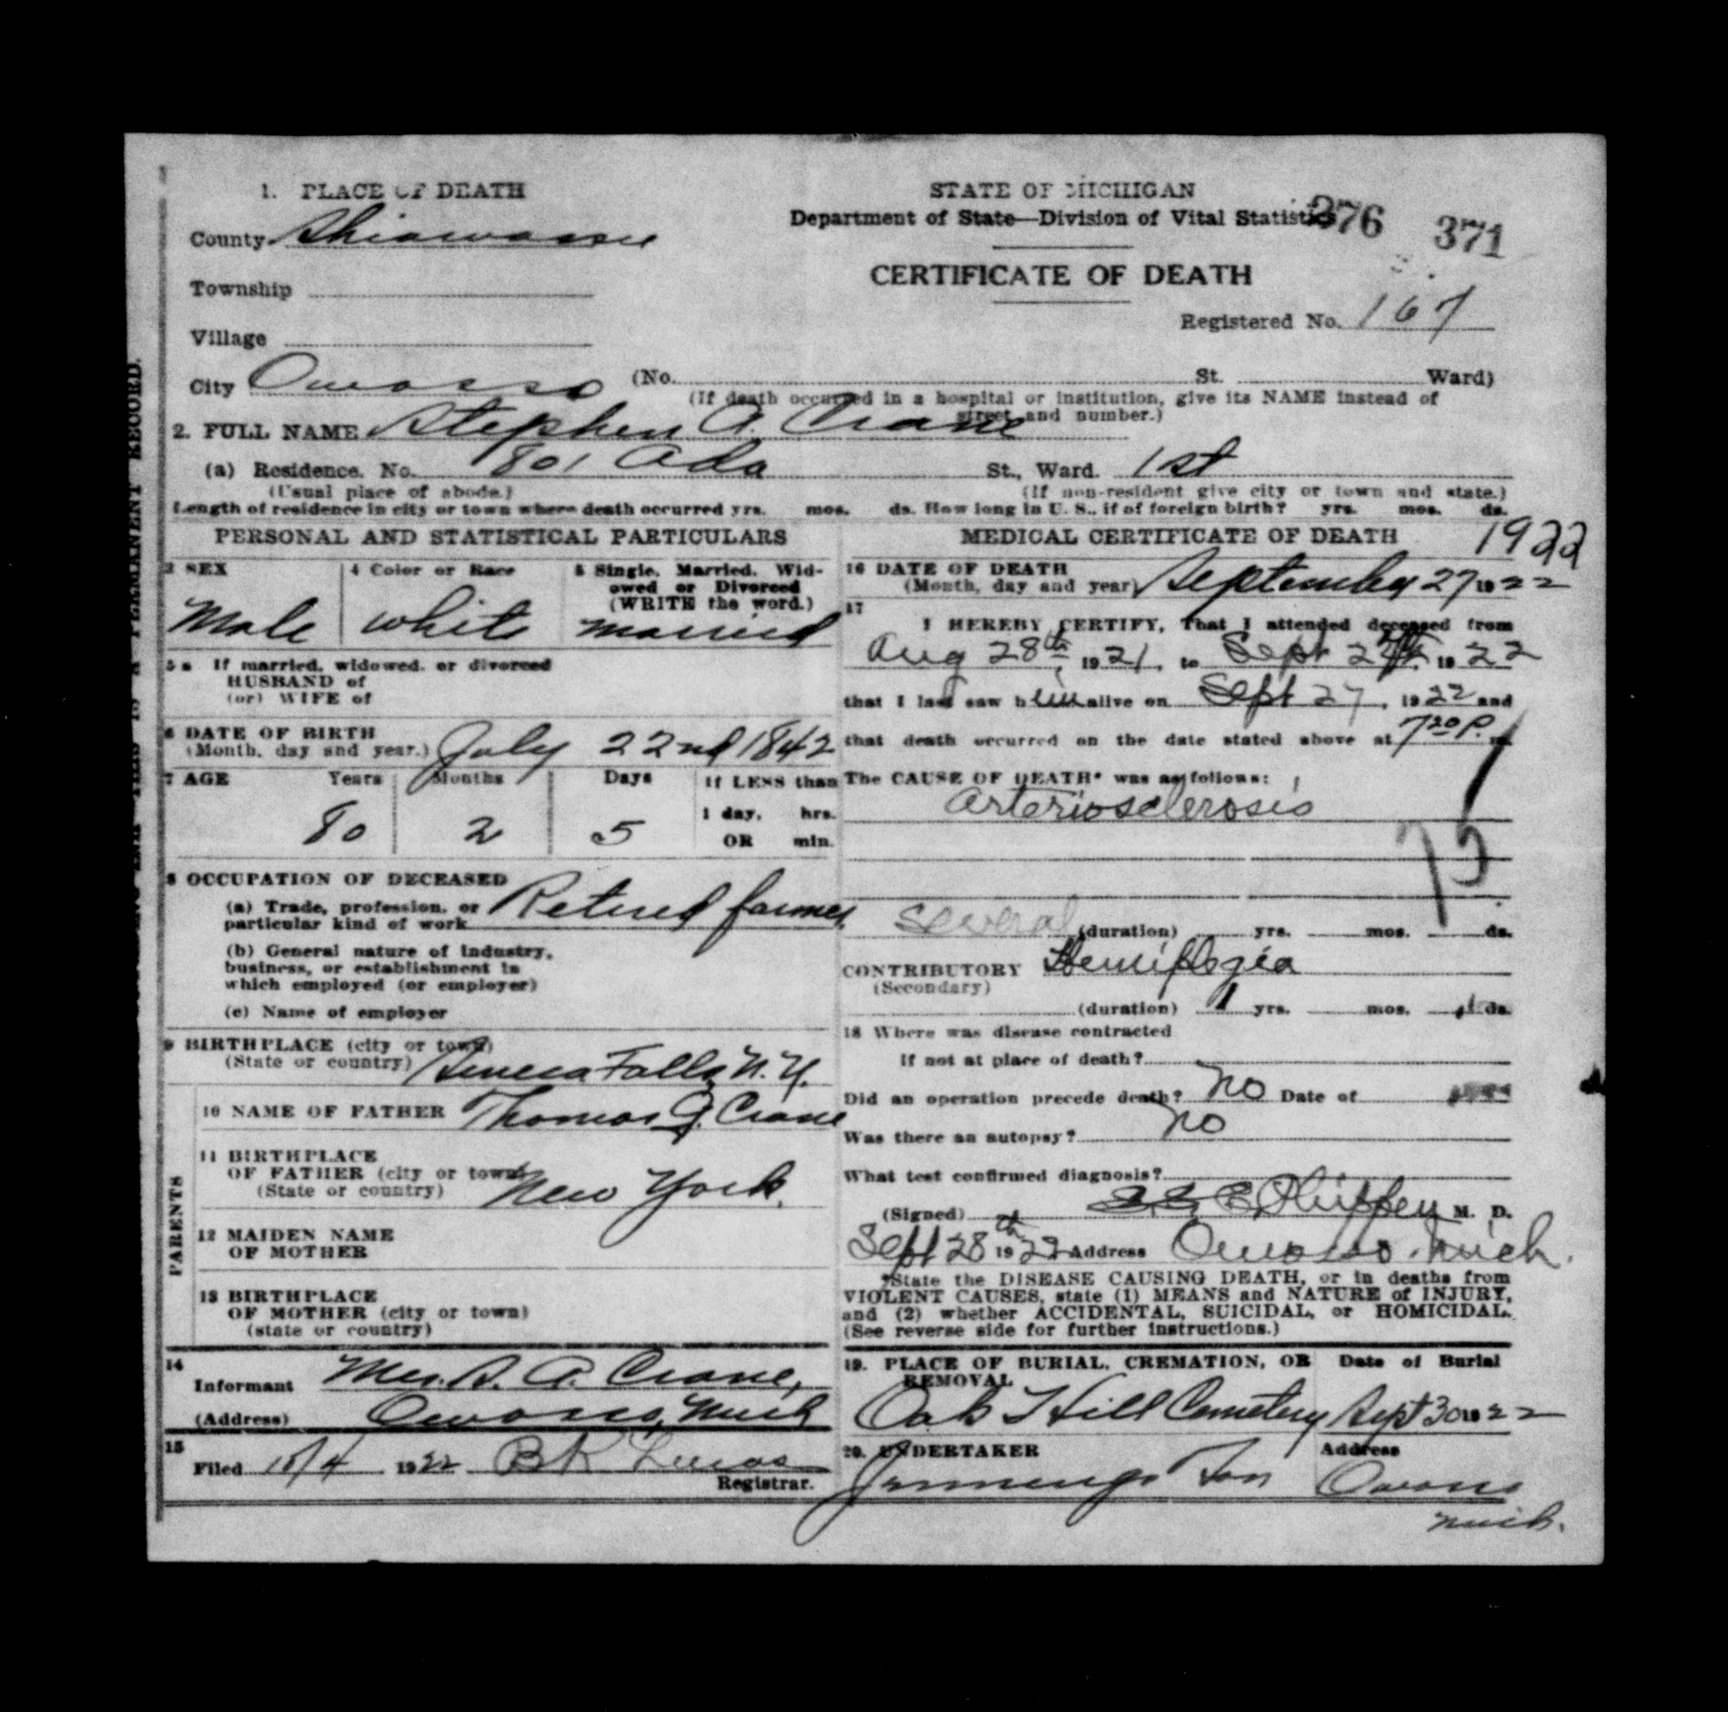 1. PLACE OF DEATH
County Shiawassee
Township
Village
City Owosso
STATE OF MICHIGAN
Department of State—Division of Vital Statistics
376 371
CERTIFICATE OF DEATH
Registered No. 167
(No. St. Ward)
(If death occurred in a hospital or institution, give its NAME instead of
street and number.)
2. FULL NAME Stephen A. Crane
(a) Residence. No. 801 Ada St., Ward. 1st
(Usual place of abode.) (If non-resident give city or town and state.)
Length of residence in city or town where death occurred yrs. mos. ds. How long in U. S., if of foreign birth? yrs. mos. ds.
PERSONAL AND STATISTICAL PARTICULARS
3 SEX
Male
4 Color or Race
White
5 Single, Married, Wid-
owed or Divorced
(WRITE the word.)
Married
5a If married, widowed, or divorced
HUSBAND of
(or) WIFE of
6 DATE OF BIRTH
(Month, day and year.) July 22nd 1842
7 AGE Years Months Days If LESS than
1 day, hrs.
80 2 5 OR min.
8 OCCUPATION OF DECEASED
(a) Trade, profession, or
particular kind of work Retired farmer
(b) General nature of industry,
business, or establishment in
which employed (or employer)
(c) Name of employer
9 BIRTHPLACE (city or town)
(State or country) Seneca Falls N. Y.
PARENTS
10 NAME OF FATHER Thomas J. Crane
11 BIRTHPLACE
OF FATHER (city or town)
(State or country) New York.
12 MAIDEN NAME
OF MOTHER
13 BIRTHPLACE
OF MOTHER (city or town)
(state or country)
14
Informant Mrs. S. A. Crane,
(Address) Owosso, Mich
15
Filed 10/4 1922 BK Lucas
Registrar.
MEDICAL CERTIFICATE OF DEATH 1922
16 DATE OF DEATH
(Month, day and year) September 27 1922
17
I HEREBY CERTIFY, That I attended deceased from
Aug 28th, 1921, to Sept 27th 1922
that I last saw him alive on Sept 27, 1922 and
that death occurred on the date stated above at 7 20 P. m.
The CAUSE OF DEATH* was as follows:
Arteriosclerosis
75
several (duration) yrs. mos. ds.
CONTRIBUTORY Hemiplegia
(Secondary)
(duration) 1 yrs. mos. 1 ds.
18 Where was disease contracted
If not at place of death?
Did an operation precede death? No Date of
Was there an autopsy? No
What test confirmed diagnosis?
(Signed) M. D.
Sept 28th 1922 Address Owosso Mich.
*State the DISEASE CAUSING DEATH, or in deaths from
VIOLENT CAUSES, state (1) MEANS and NATURE of INJURY,
and (2) whether ACCIDENTAL, SUICIDAL, or HOMICIDAL.
(See reverse side for further instructions.)
19. PLACE OF BURIAL, CREMATION, OR
REMOVAL
Oak Hill Cemetery
Date of Burial
Sept 30 1922
20. UNDERTAKER
Jennings Son
Address
Owosso
Mich.